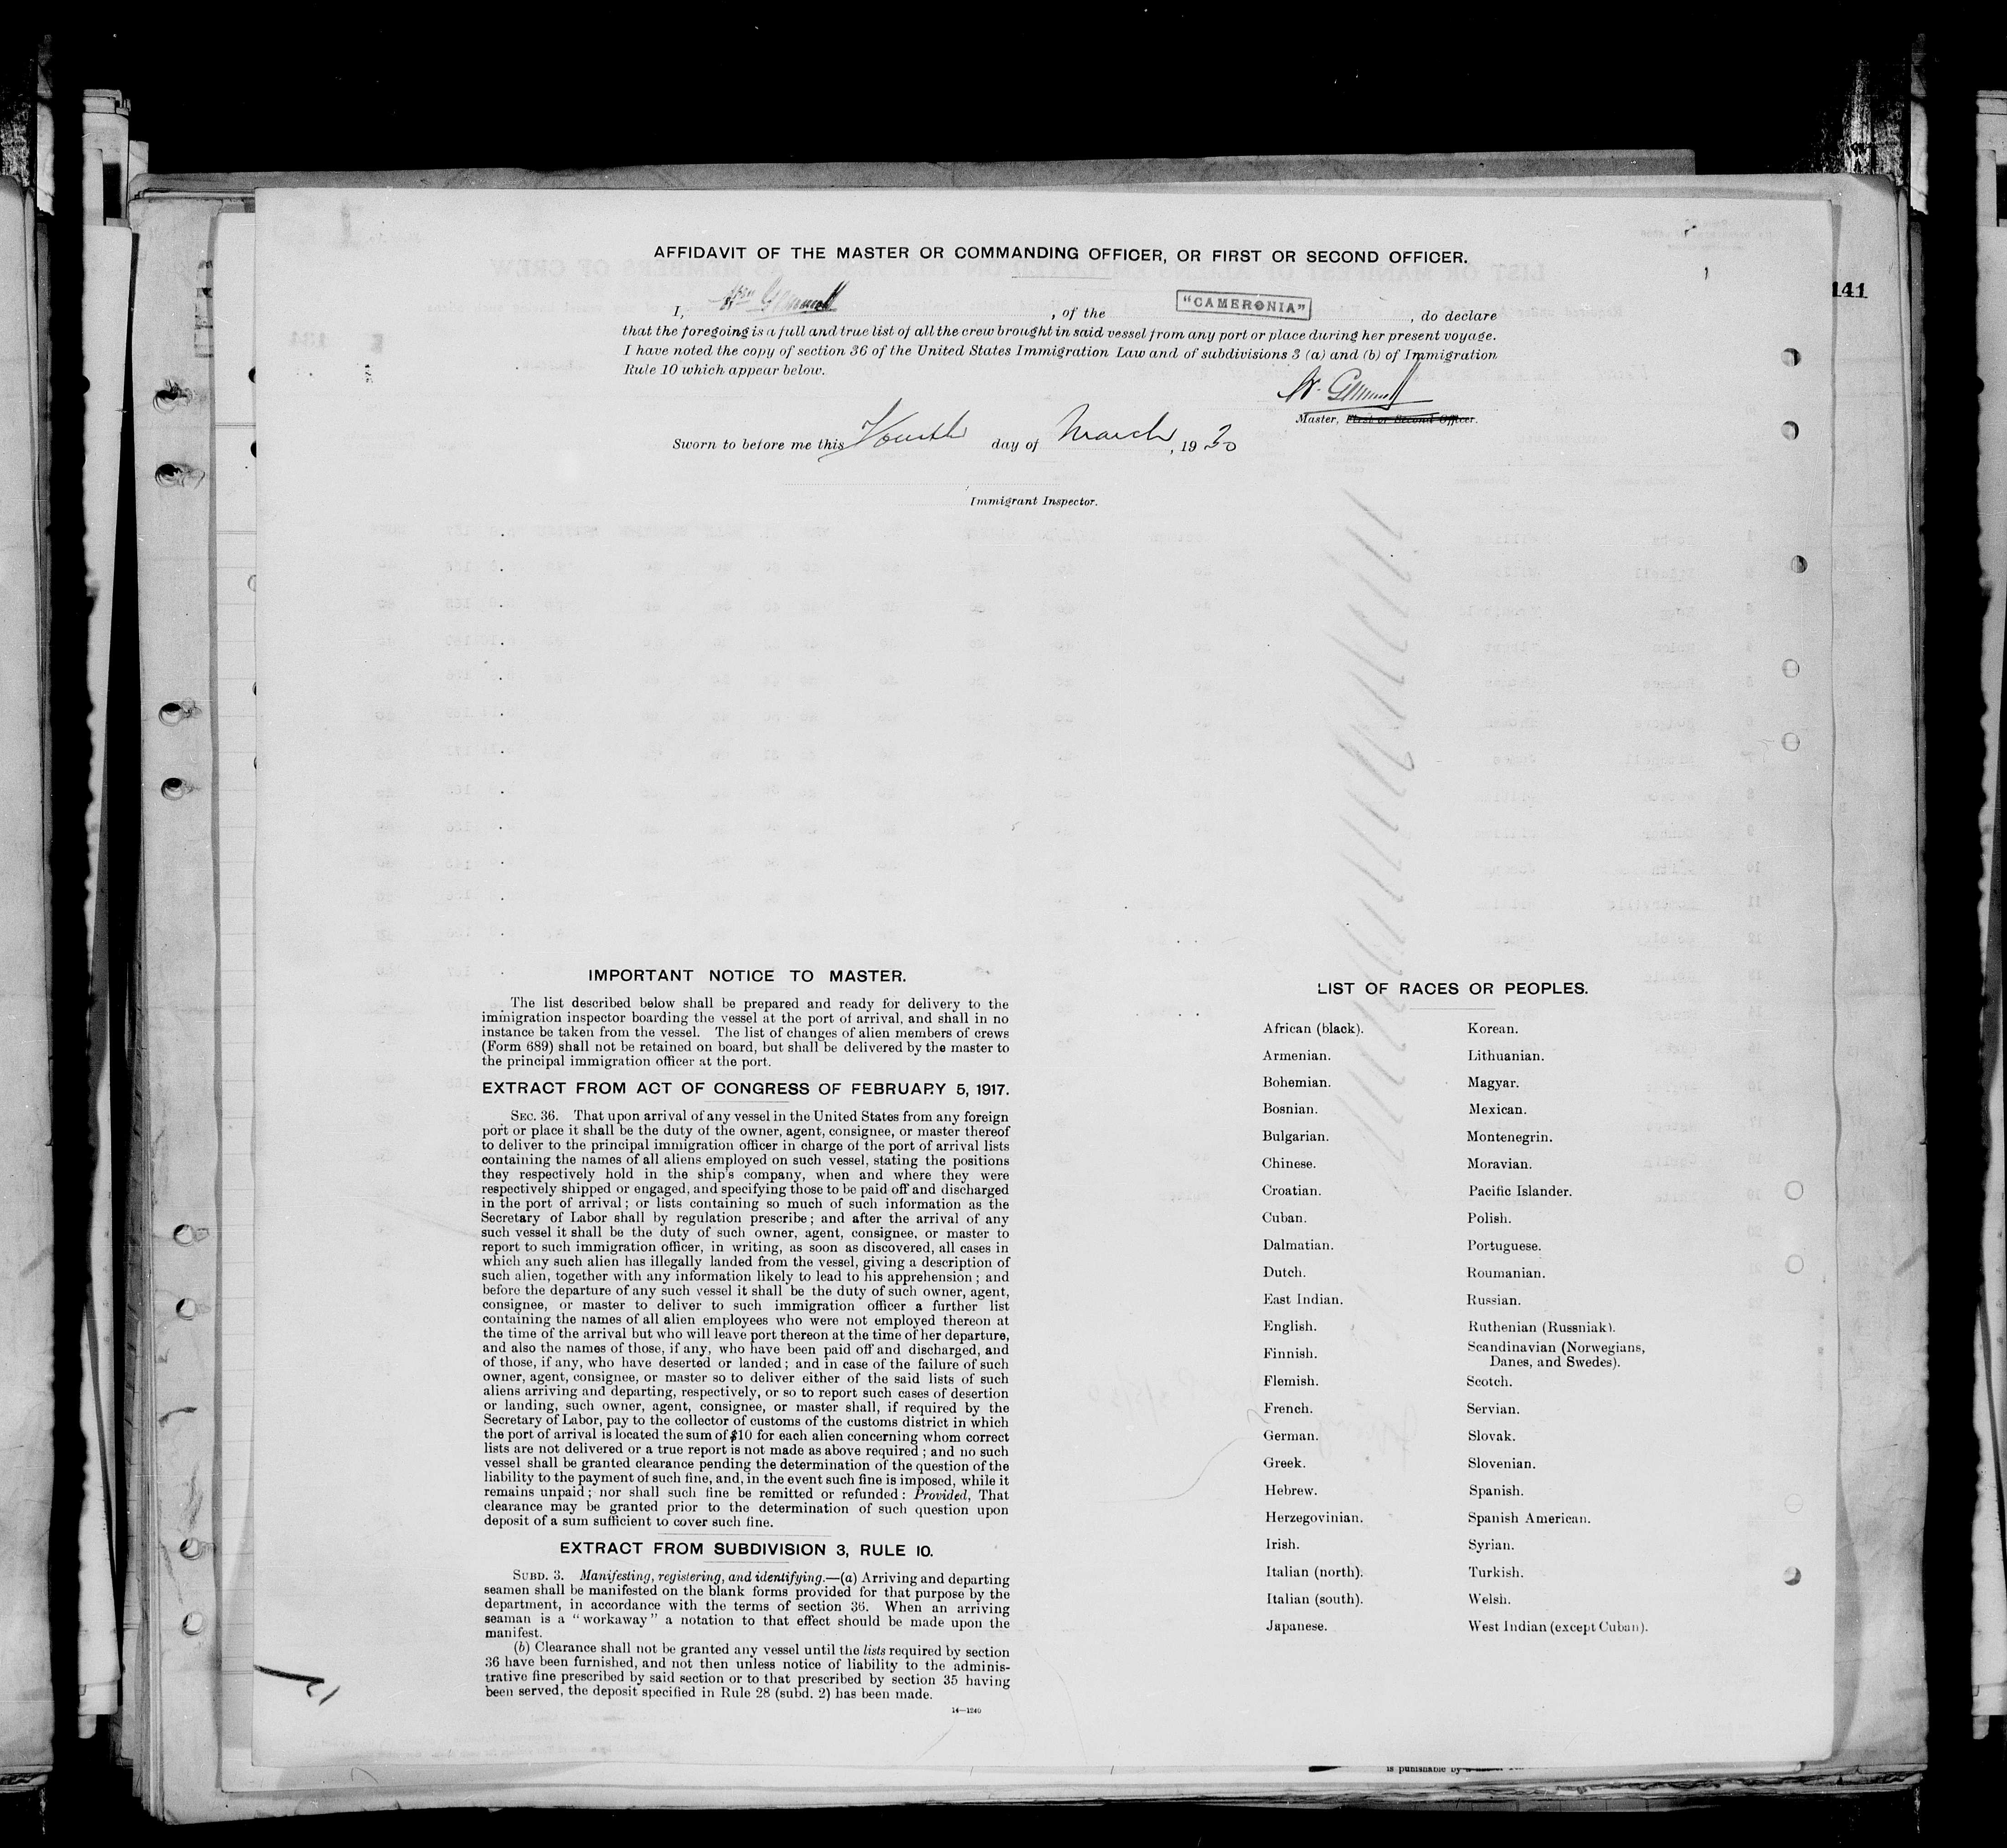 AFFIDAVIT OF THE MASTER OR COMMANDING OFFICER, OR FIRST OR SECOND OFFICER.
141
I, , of the "CAMERONIA", do declare
that the foregoing is a full and true list of all the crew brought in said vessel from any port or place during her present voyage.
I have noted the copy of section 36 of the United States Immigration Law and of subdivisions 3 (a) and (b) of Immigration
Rule 10 which appear below.
Master, First or Second Officer.
Sworn to before me this Fourth day of March, 1930
Immigrant Inspector.
IMPORTANT NOTICE TO MASTER.
The list described below shall be prepared and ready for delivery to the
immigration inspector boarding the vessel at the port of arrival, and shall in no
instance be taken from the vessel. The list of changes of alien members of crews
(Form 689) shall not be retained on board, but shall be delivered by the master to
the principal immigration officer at the port.
EXTRACT FROM ACT OF CONGRESS OF FEBRUARY 5, 1917.
SEC. 36. That upon arrival of any vessel in the United States from any foreign
port or place it shall be the duty of the owner, agent, consignee, or master thereof
to deliver to the principal immigration officer in charge of the port of arrival lists
containing the names of all aliens employed on such vessel, stating the positions
they respectively hold in the ship's company, when and where they were
respectively shipped or engaged, and specifying those to be paid off and discharged
in the port of arrival; or lists containing so much of such information as the
Secretary of Labor shall by regulation prescribe; and after the arrival of any
such vessel it shall be the duty of such owner, agent, consignee, or master to
report to such immigration officer, in writing, as soon as discovered, all cases in
which any such alien has illegally landed from the vessel, giving a description of
such alien, together with any information likely to lead to his apprehension; and
before the departure of any such vessel it shall be the duty of such owner, agent,
consignee, or master to deliver to such immigration officer a further list
containing the names of all alien employees who were not employed thereon at
the time of the arrival but who will leave port thereon at the time of her departure,
and also the names of those, if any, who have been paid off and discharged, and
of those, if any, who have deserted or landed; and in case of the failure of such
owner, agent, consignee, or master so to deliver either of the said lists of such
aliens arriving and departing, respectively, or so to report such cases of desertion
or landing, such owner, agent, consignee, or master shall, if required by the
Secretary of Labor, pay to the collector of customs of the customs district in which
the port of arrival is located the sum of $10 for each alien concerning whom correct
lists are not delivered or a true report is not made as above required; and no such
vessel shall be granted clearance pending the determination of the question of the
liability to the payment of such fine, and, in the event such fine is imposed, while it
remains unpaid; nor shall such fine be remitted or refunded: Provided, That
clearance may be granted prior to the determination of such question upon
deposit of a sum sufficient to cover such fine.
EXTRACT FROM SUBDIVISION 3, RULE 10.
SUBD. 3. Manifesting, registering, and identifying.—(a) Arriving and departing
seamen shall be manifested on the blank forms provided for that purpose by the
department, in accordance with the terms of section 36. When an arriving
seaman is a "workaway" a notation to that effect should be made upon the
manifest.
(b) Clearance shall not be granted any vessel until the lists required by section
36 have been furnished, and not then unless notice of liability to the adminis-
trative fine prescribed by said section or to that prescribed by section 35 having
been served, the deposit specified in Rule 28 (subd. 2) has been made.
14—1240
LIST OF RACES OR PEOPLES.
African (black).
Armenian.
Bohemian.
Bosnian.
Bulgarian.
Chinese.
Croatian.
Cuban.
Dalmatian.
Dutch.
East Indian.
English.
Finnish.
Flemish.
French.
German.
Greek.
Hebrew.
Herzegovinian.
Irish.
Italian (north).
Italian (south).
Japanese.
Korean.
Lithuanian.
Magyar.
Mexican.
Montenegrin.
Moravian.
Pacific Islander.
Polish.
Portuguese.
Roumanian.
Russian.
Ruthenian (Russniak).
Scandinavian (Norwegians,
Danes, and Swedes).
Scotch.
Servian.
Slovak.
Slovenian.
Spanish.
Spanish American.
Syrian.
Turkish.
Welsh.
West Indian (except Cuban).
is punishable by